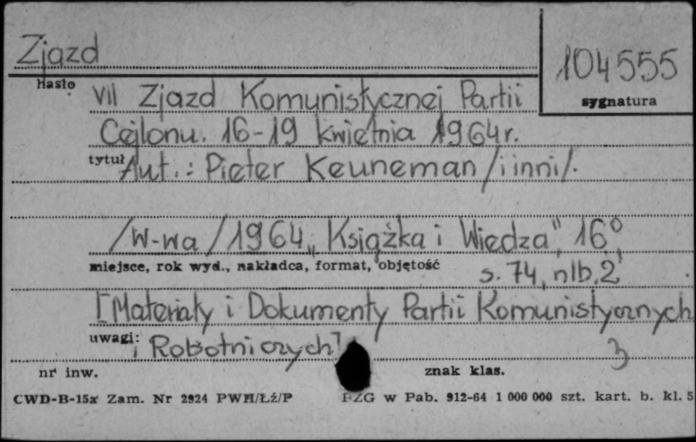 Zjazd
104555
Hasło
sygnatura
VII Zjazd Komunistycznej Partii
Cejlonu. 16-19 kwietnia 1964r.
tytuł Aut.: Pieter Keuneman /i inni/.
/W-wa/ 1964 „Książka i Wiedza", 16°,
miejsce, rok wyd., nakładca, format, objętość
s. 74, nlb. 2
[Materiały i Dokumenty Partii Komunistycznych
uwagi: i Robotniczych]
3
nr inw.
znak klas.
CWD-B-15x Zam. Nr 2924 PWH/Łź/P
PZG w Pab. 912-64 1 000 000 szt. kart. b. kl. 5